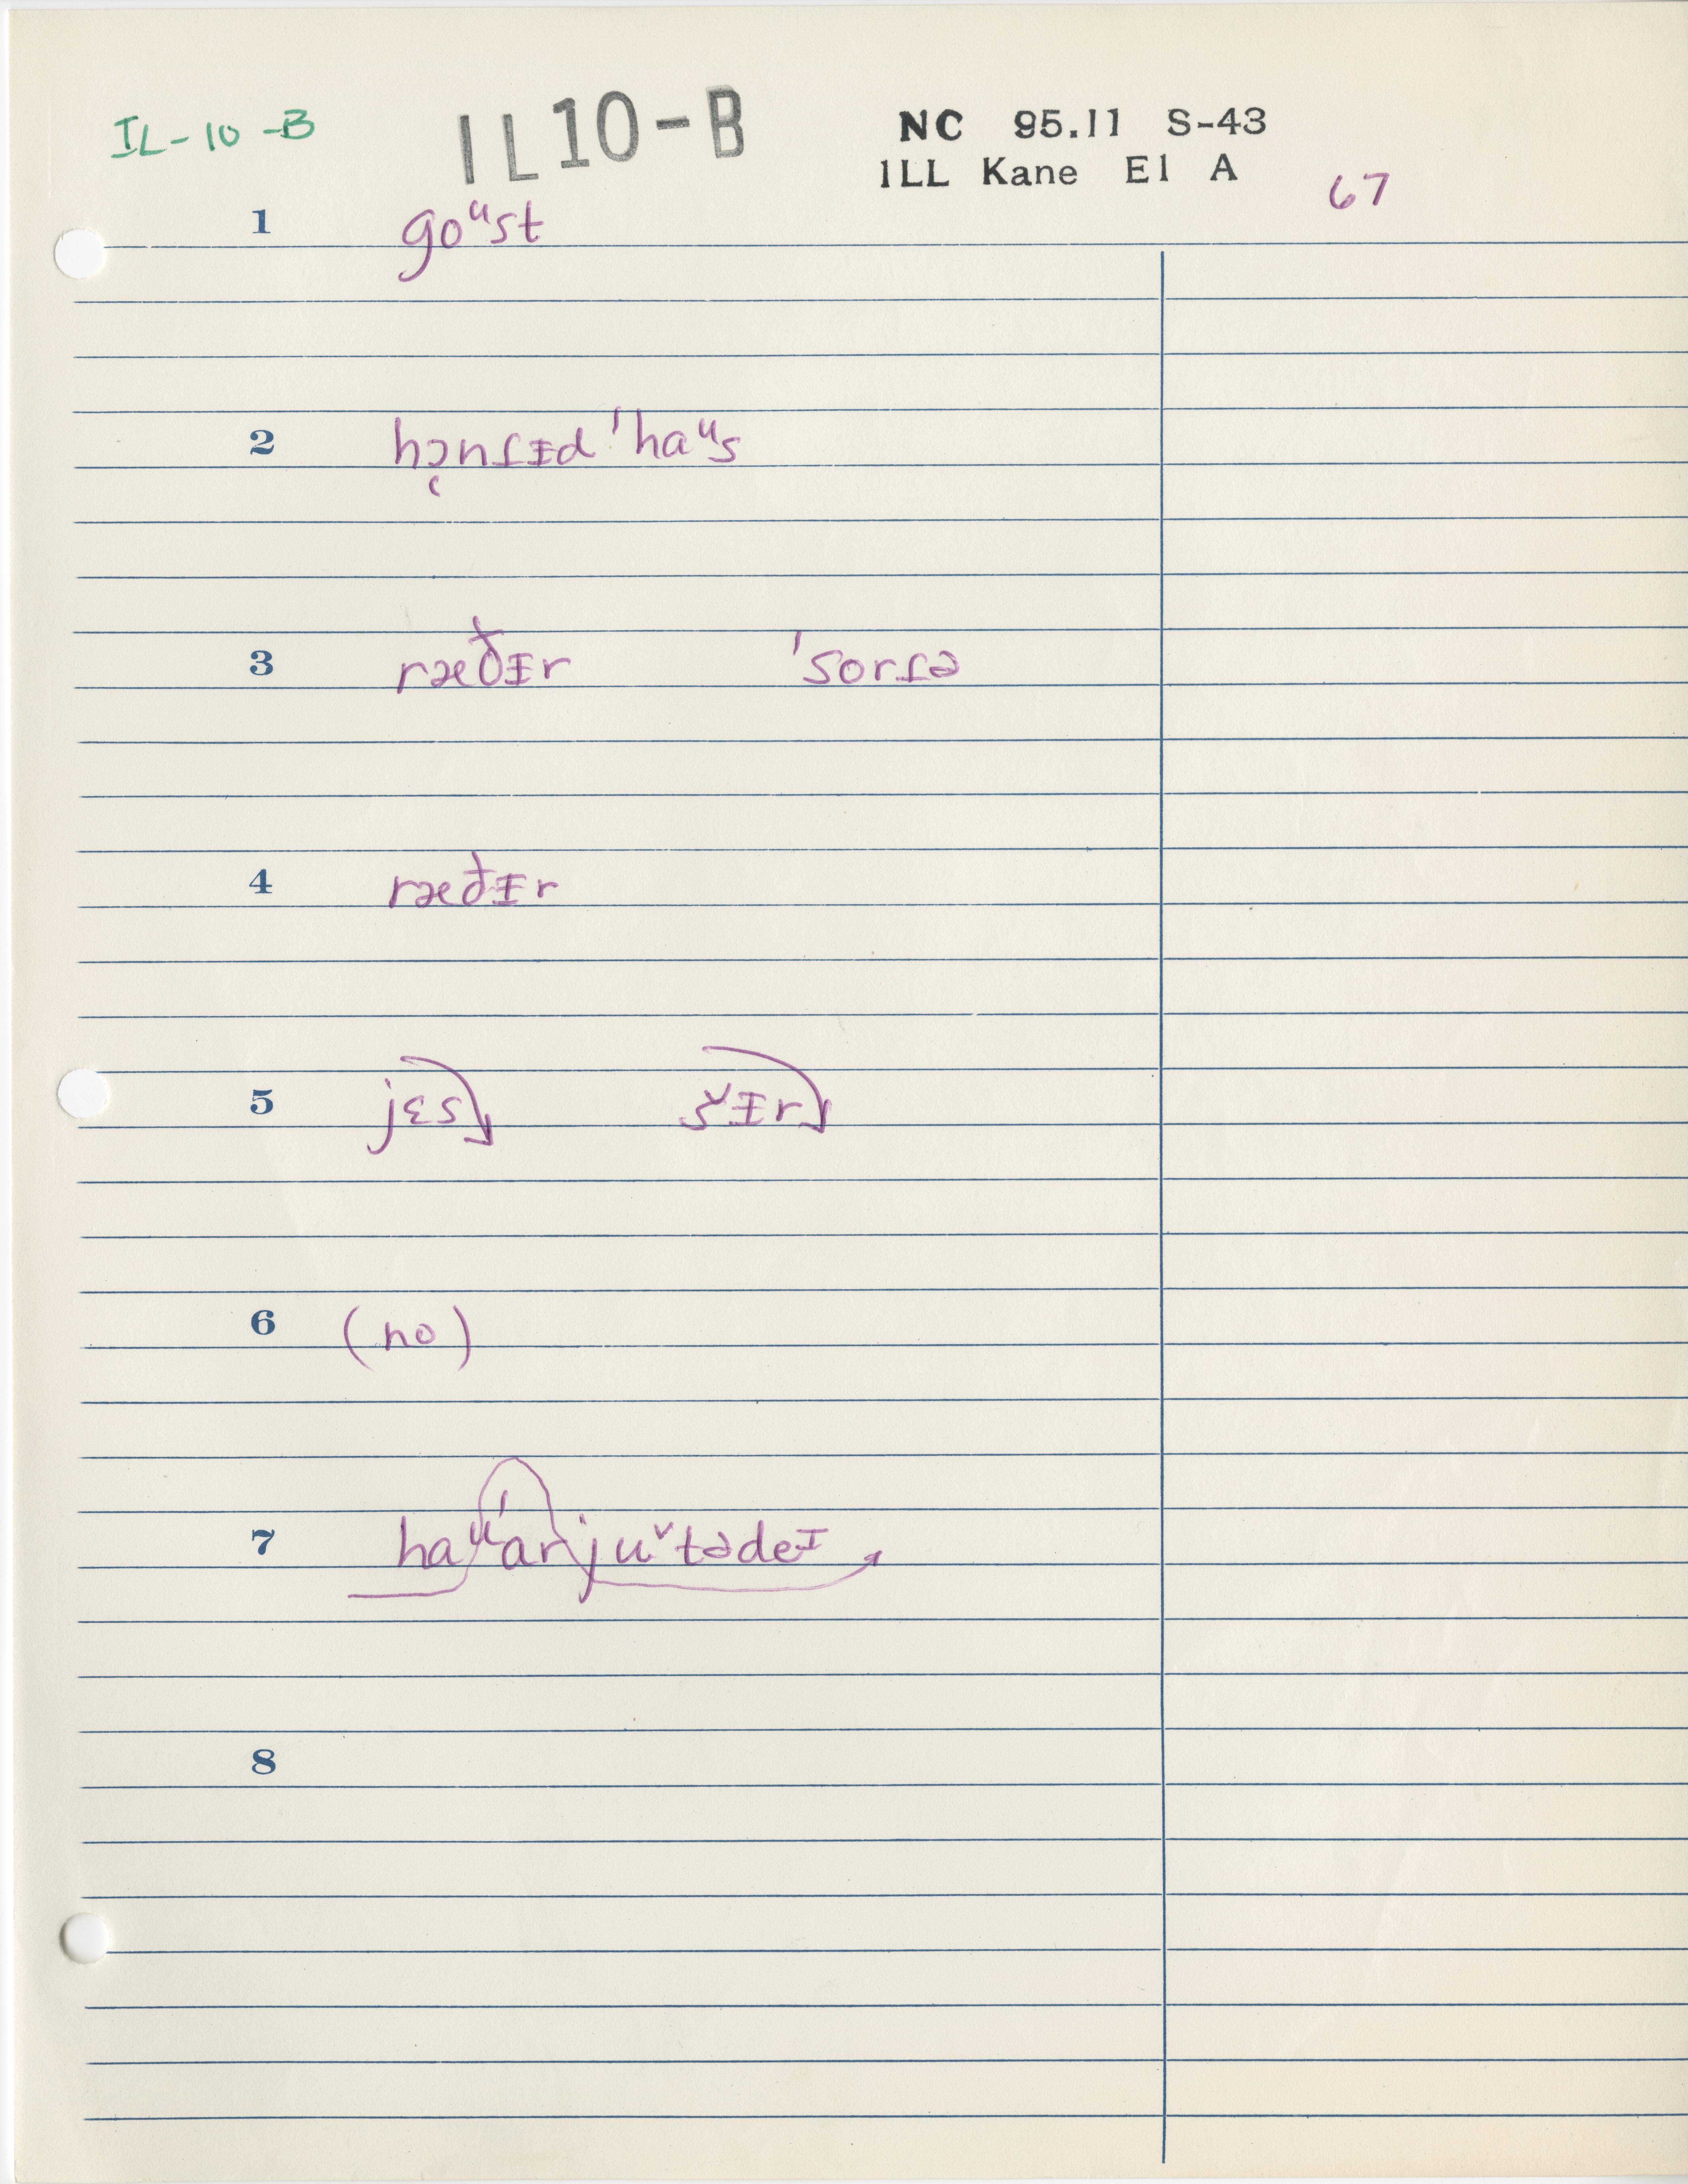 IL-10-B IL10-B NC 95.11 S-43
ILL Kane E1 A 67
1 goᵘst
2 hɔ̜nɾᵻd ˈhaᵘs
3 ræðᵻr ˈsorɾə
4 ræðᵻr
5 jɛs šᵻr
6 (no)
7 haᵘˈar juᵛtədeᶦ
8